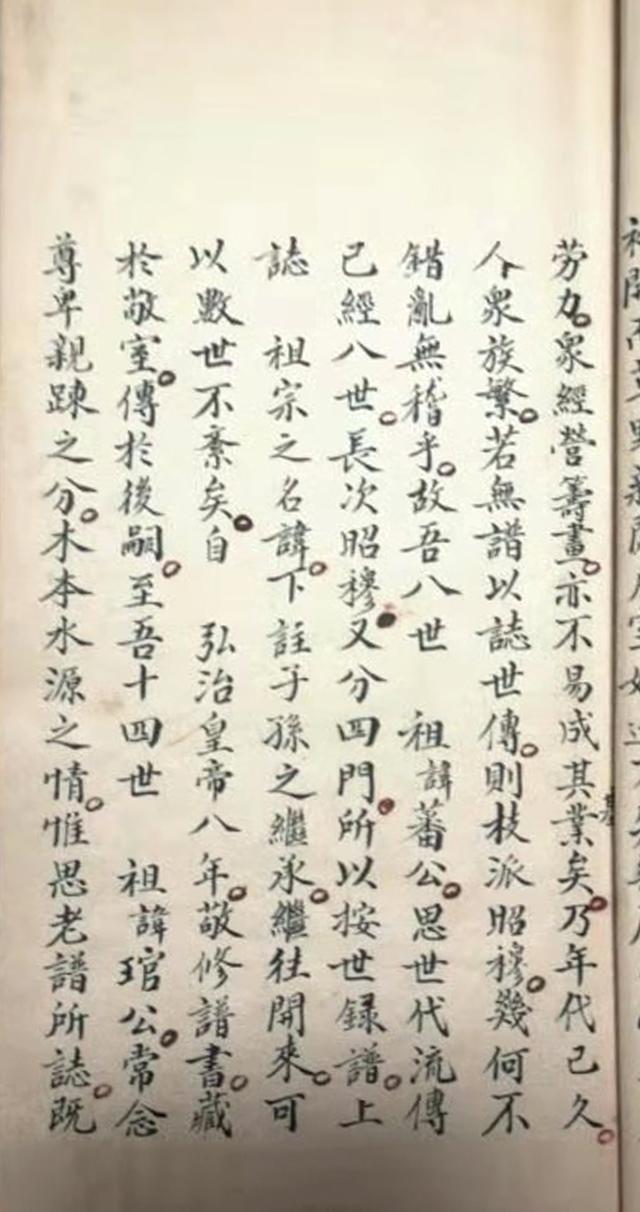 劳力。衆經營籌畫。亦不易成其業矣。乃年代已久。
基
人衆族繁。若無譜以誌世傳。則枝派昭穆。幾何不
錯亂無稽乎。故吾八世　祖諱蕃公。思世代流傳
已經八世。長次昭穆。又分四門。所以按世録譜。上
誌　祖宗之名諱。下註子孫之繼承。繼往開來。可
以數世不紊矣。自　弘治皇帝八年。敬修譜書。藏
於敬室。傳於後嗣。至吾十四世　祖諱琯公。常念
尊卑親踈之分。木本水源之情。惟思老譜所誌。既